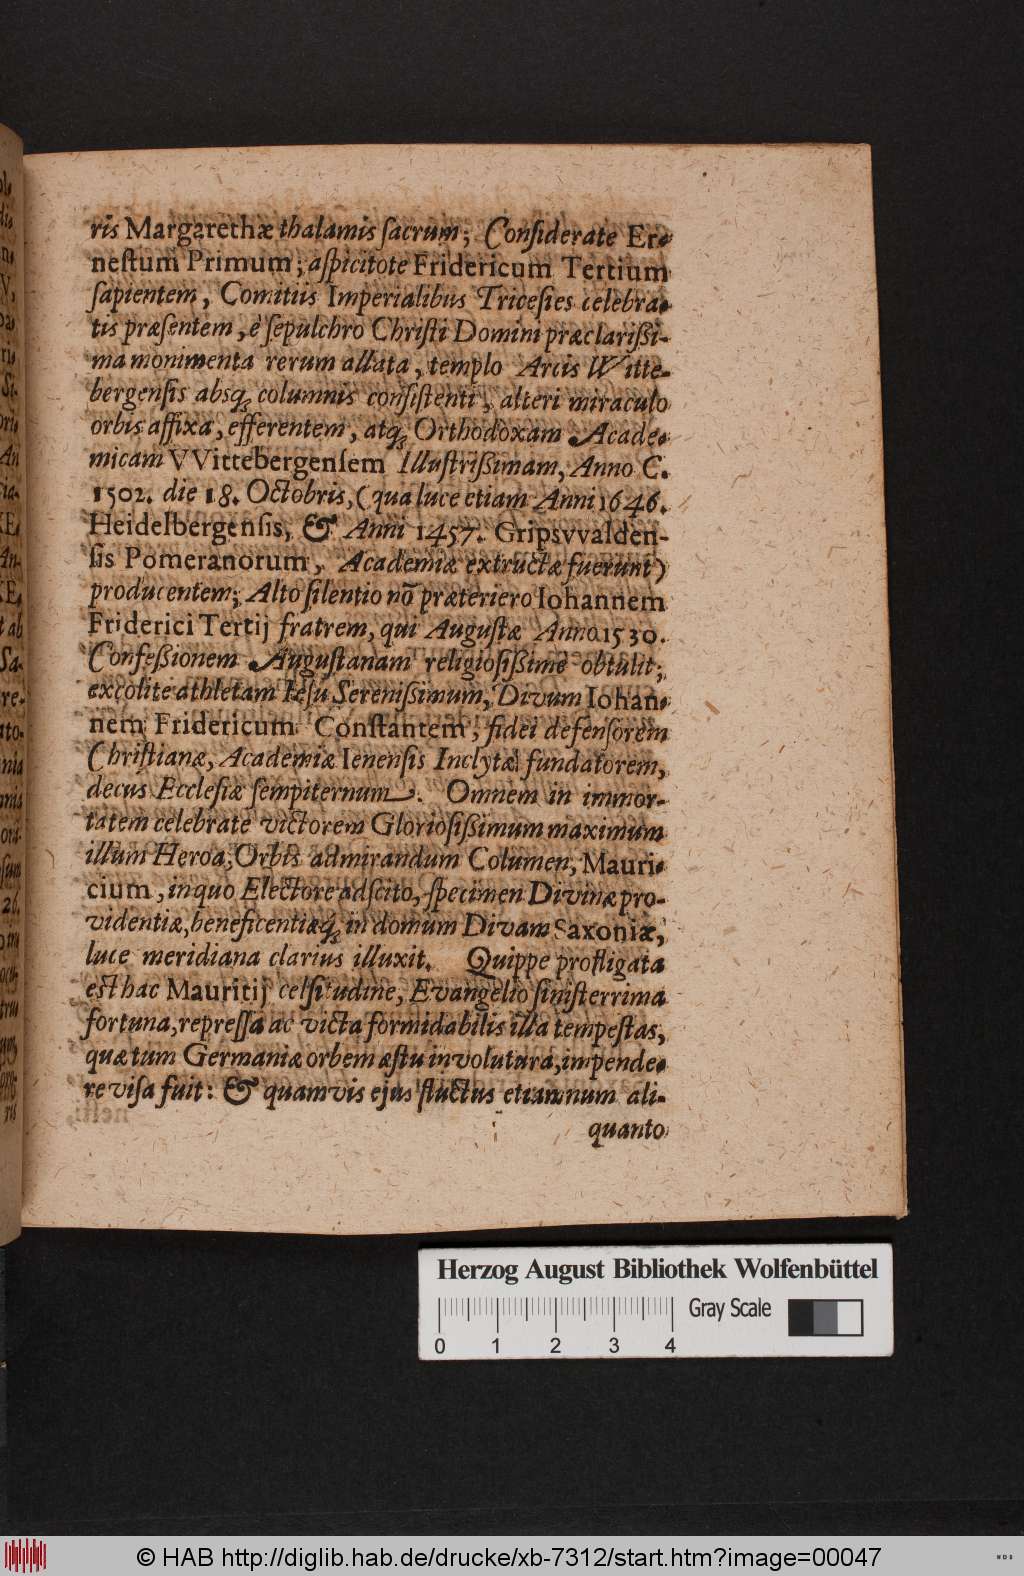 ris Margarethæ thalamis ſacrum; Conſiderate Er-
neſtum Primum; aſpicitote Fridericum Tertium
ſapientem, Comitiis Imperialibus Triceſies celebra-
tis præſentem, è ſepulchro Chriſti Domini præclariſſi-
ma monimenta rerum allata, templo Arcis Witte-
bergenſis absq; columnis conſiſtenti, alteri miraculo
orbis affixa, efferentem, atq; Orthodoxam Acade-
micam VVittebergenſem Illuſtriſſimam, Anno C.
1502. die 18. Octobris, (qua luce etiam Anni 1646.
Heidelbergenſis, & Anni 1457. Gripsvvalden-
ſis Pomeranorum, Academiæ extructæ fuerunt)
producentem; Alto ſilentio nõ præteriero Iohannem
Friderici Tertij fratrem, qui Auguſtæ Anno 1530.
Confeſſionem Auguſtanam religioſiſſimè obtulit;
excolite athletam Ieſu Sereniſſimum, Divum Iohan-
nem Fridericum Conſtantem, fidei defenſorem
Chriſtianæ, Academiæ Ienenſis Inclytæ fundatorem,
decus Eccleſiæ ſempiternum. Omnem in immor-
tatem celebrate victorem Glorioſiſſimum maximum
illum Heroa, Orbis admirandum Columen, Mauri-
cium, in quo Electore adſcito, ſpecimen Divinæ pro-
videntiæ, beneficentiæq; in domum Divam Saxoniæ,
luce meridiana clarius illuxit. Quippe profligata
eſt hac Mauritij celſitudine, Evangelio ſiniſterrima
fortuna, repreſſa ac victa formidabilis illa tempeſtas,
quæ tum Germaniæ orbem æſtu involutura, impende-
re viſa fuit: & quamvis ejus fluctus etiamnum ali-
quanto
Herzog August Bibliothek Wolfenbüttel
Gray Scale
0 1 2 3 4
© HAB http://diglib.hab.de/drucke/xb-7312/start.htm?image=00047